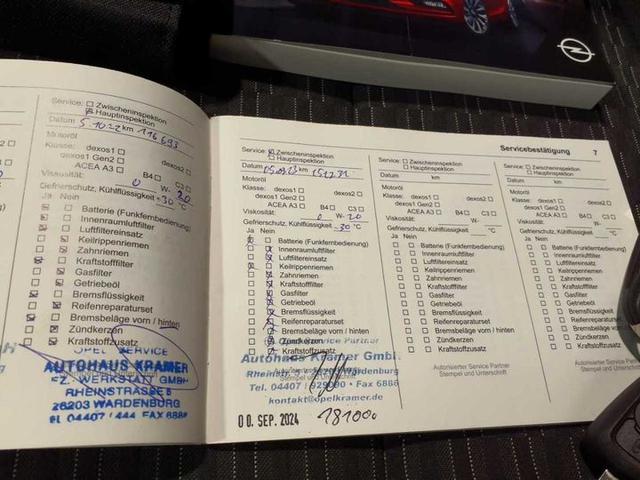 Service: ☐ Zwischeninspektion
☒ Hauptinspektion
Datum 5.10.22 km 116 693
Motoröl
Klasse: dexos1 ☐ dexos2 ☐
dexos1 Gen2 ☐
ACEA A3 ☐ B4 ☐ C3 ☐
Viskosität: 0 W- 20
Gefrierschutz, Kühlflüssigkeit -30 °C
Ja Nein
Batterie (Funkfernbedienung)
Innenraumfilter
Luftfiltereinsatz
Keilrippenriemen
Zahnriemen
Kraftstofffilter
Gasfilter
Getriebeöl
Bremsflüssigkeit
Reifenreparaturset
Bremsbeläge vorn / hinten
Zündkerzen
Kraftstoffzusatz
OPEL SERVICE
AUTOHAUS KRAMER
FZ. WERKSTATT GMBH
RHEINSTRASSE
26203 WARDENBURG
Servicebestätigung 7
Service: ☒ Zwischeninspektion
☐ Hauptinspektion
Datum km
Motoröl
Klasse: dexos1 ☐ dexos2 ☐
dexos1 Gen2 ☐
ACEA A3 ☐ B4 ☐ C3 ☐
Viskosität: 0 W- 20
Gefrierschutz, Kühlflüssigkeit -30 °C
Ja Nein
Batterie (Funkfernbedienung)
Innenraumfilter
Luftfiltereinsatz
Keilrippenriemen
Zahnriemen
Kraftstofffilter
Gasfilter
Getriebeöl
Bremsflüssigkeit
Reifenreparaturset
Bremsbeläge vorn / hinten
Zündkerzen
Kraftstoffzusatz
Service Partner
Autohaus Kramer GmbH
Rheinstr.
Stempel und
Tel. 04407 / • Fax 6886
kontakt@opelkramer.de
00. SEP. 2024 181000
Service: ☐ Zwischeninspektion
☐ Hauptinspektion
Datum km
Motoröl
Klasse: dexos1 ☐ dexos2 ☐
dexos1 Gen2 ☐
ACEA A3 ☐ B4 ☐ C3 ☐
Viskosität: W-
Gefrierschutz, Kühlflüssigkeit °C
Ja Nein
Batterie (Funkfernbedienung)
Innenraumfilter
Luftfiltereinsatz
Keilrippenriemen
Zahnriemen
Kraftstofffilter
Gasfilter
Getriebeöl
Bremsflüssigkeit
Reifenreparaturset
Bremsbeläge vorn / hinten
Zündkerzen
Kraftstoffzusatz
Autorisierter Service Partner
Stempel und Unterschrift
Service: ☐ Zwischeninspektion
☐ Hauptinspektion
Datum km
Motoröl
Klasse: dexos1 ☐
dexos1 Gen2 ☐
ACEA A3 ☐
Viskosität:
Gefrierschutz, Kühlflüssigkeit
Ja Nein
Batterie (Funkfernbedienung)
Innenraumfilter
Luftfiltereinsatz
Keilrippenriemen
Zahnriemen
Kraftstofffilter
Gasfilter
Getriebeöl
Bremsflüssigkeit
Reifenreparaturset
Bremsbeläge vorn / hinten
Zündkerzen
Kraftstoffzusatz
Autorisierter Service Partner
Stempel und Unterschrift